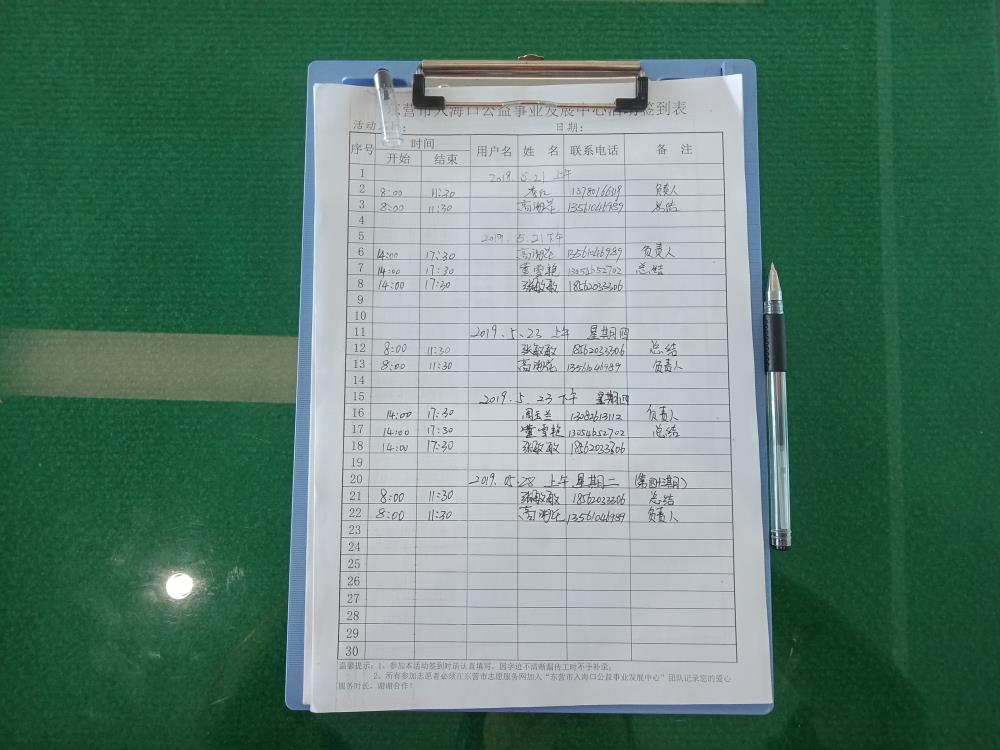 东营市入海口公益事业发展中心活动签到表
活动 : 日期:
序号 时间 用户名 姓 名 联系电话 备 注
开始 结束
1 2019.5.21 上午
2 8:00 11:30 负责人
3 8:00 11:30 13561046989 总结
4
5 2019.5.21下午
6 14:00 17:30 13561046989 负责人
7 14:00 17:30 董雪艳 13054652702 总结
8 14:00 17:30 张敏敏 18562033306
9
10
11 2019.5.23 上午 星期四
12 8:00 11:30 张敏敏 18562033306 总结
13 8:00 11:30 13561046989 负责人
14
15 2019.5.23下午 星期四
16 14:00 17:30 周玉兰 13082613112 负责人
17 14:00 17:30 董雪艳 13054652702 总结
18 14:00 17:30 张敏敏 18562033306
19
20 2019.05.28 上午 星期二
21 8:00 11:30 张敏敏 18562033306 总结
22 8:00 11:30 13561046989 负责人
23
24
25
26
27
28
29
30
温馨提示:1、参加本活动签到时请认真填写,因字迹不清晰漏传工时不予补录;
2、所有参加志愿者必须在东营市志愿服务网加入“东营市入海口公益事业发展中心”团队记录您的爱心
服务时长。谢谢合作!